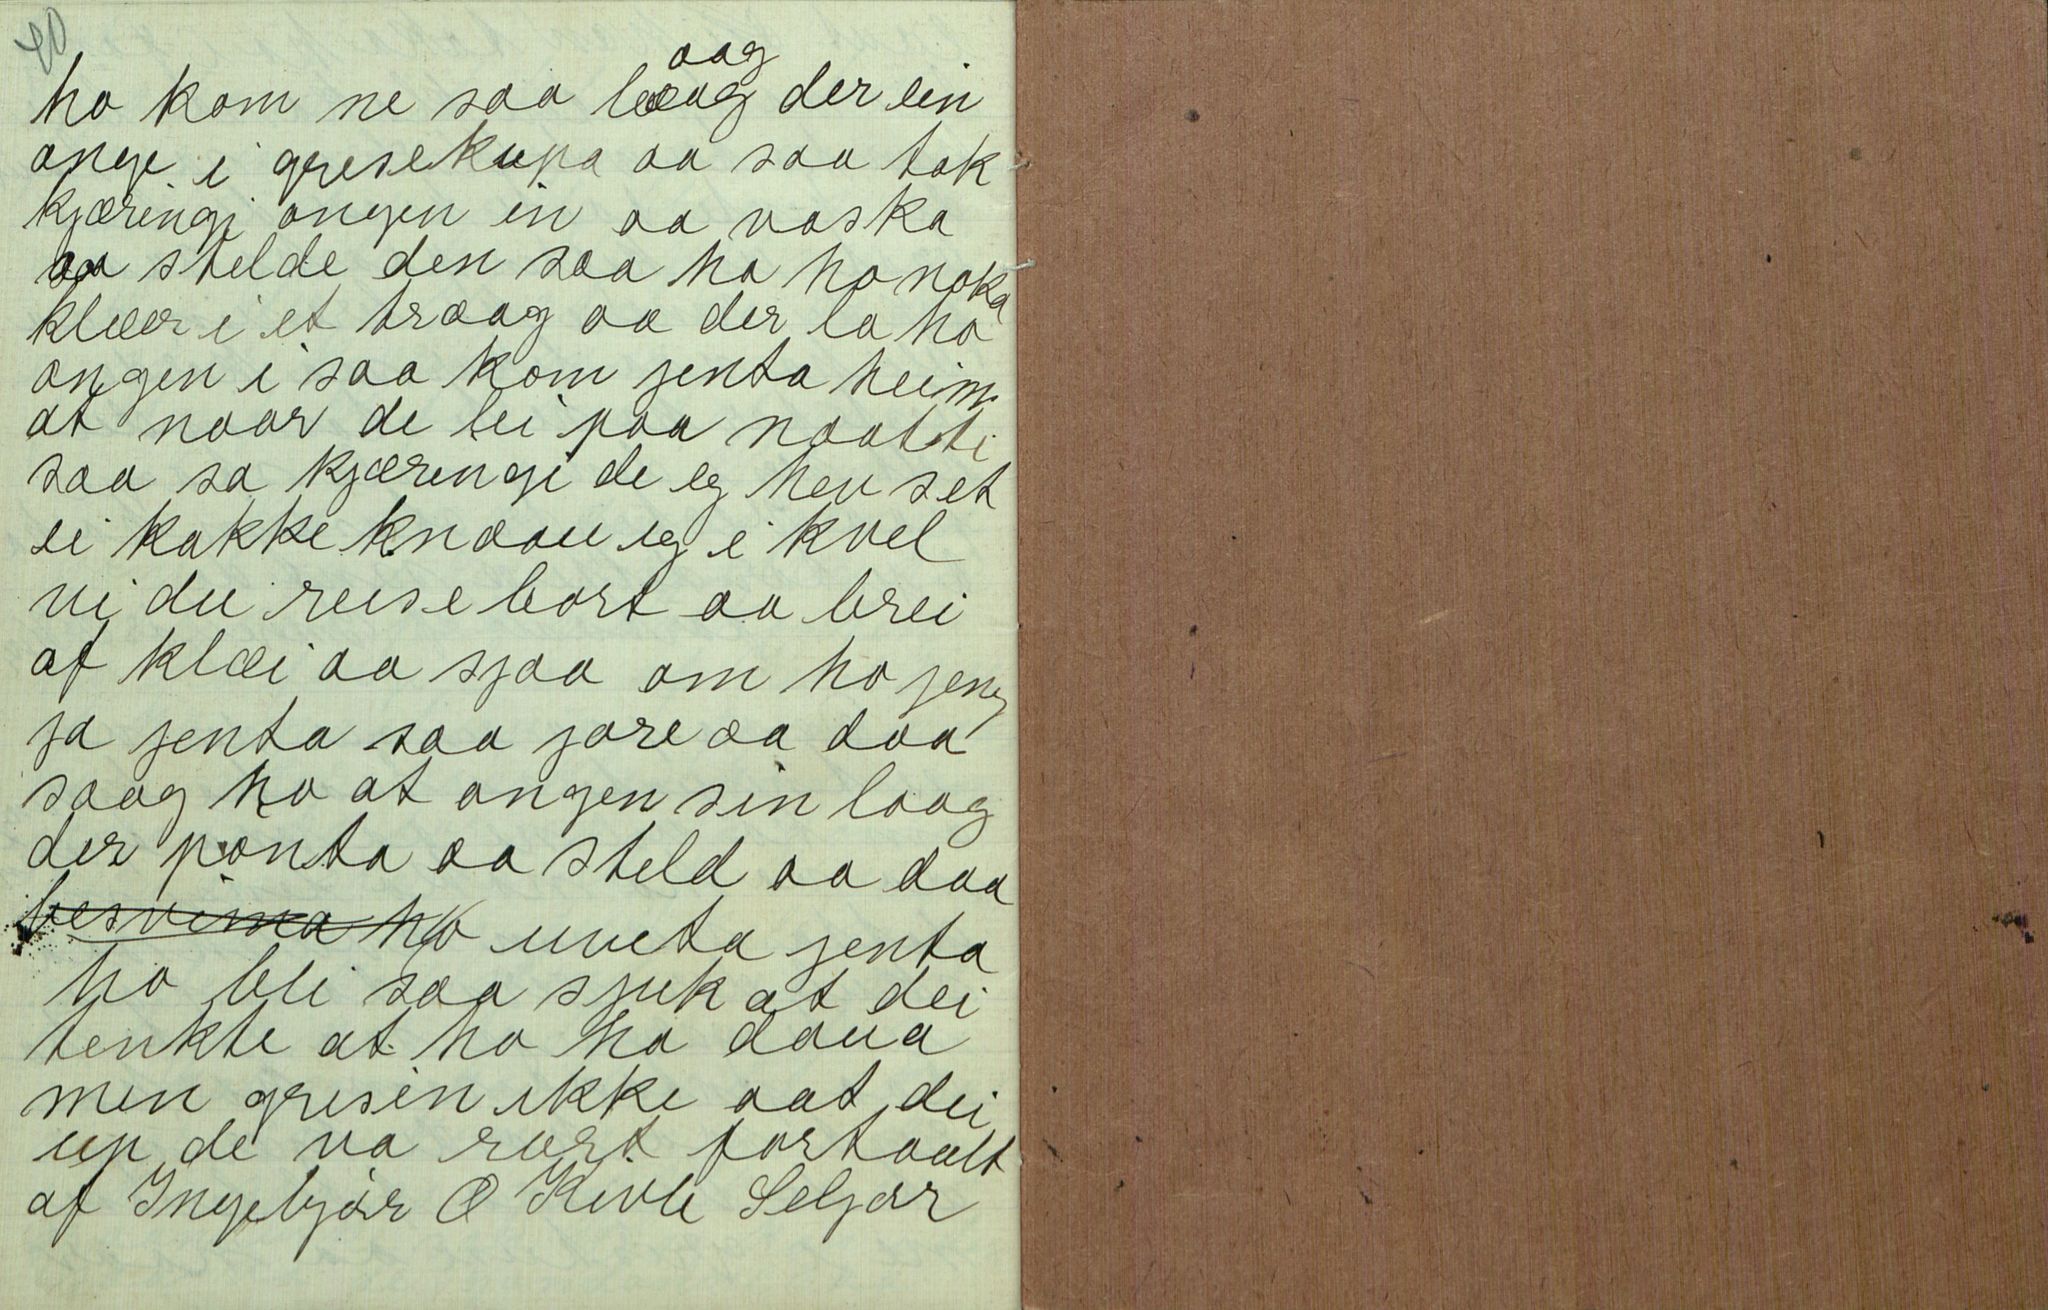 ho kom ne saa laag der ein
aag
onge i gresekupa aa saa tok
kjæringi ongen in aa vaska
aa stelde den saa ha ho noka
klæer i et traag aa der la ho
ongen i saa kom jenta heim
at naar de lei paa naatti
saa sa kjæringi de eg hev set
ei kakke knaau eg i kvel
vi du reise bort aa brei
af klæi aa sjaa om ho jeng
ja jenta saa jore aa daa
saag ho at ongen sin laag
der ponta aa steld aa daa
besvima ho uveta jenta
ho blei saa sjuk at dei
tenkte at ho ha daua
men gresen ikke aat dei
up de va rart fortaalt
af Ingebjør O Kivle Seljor